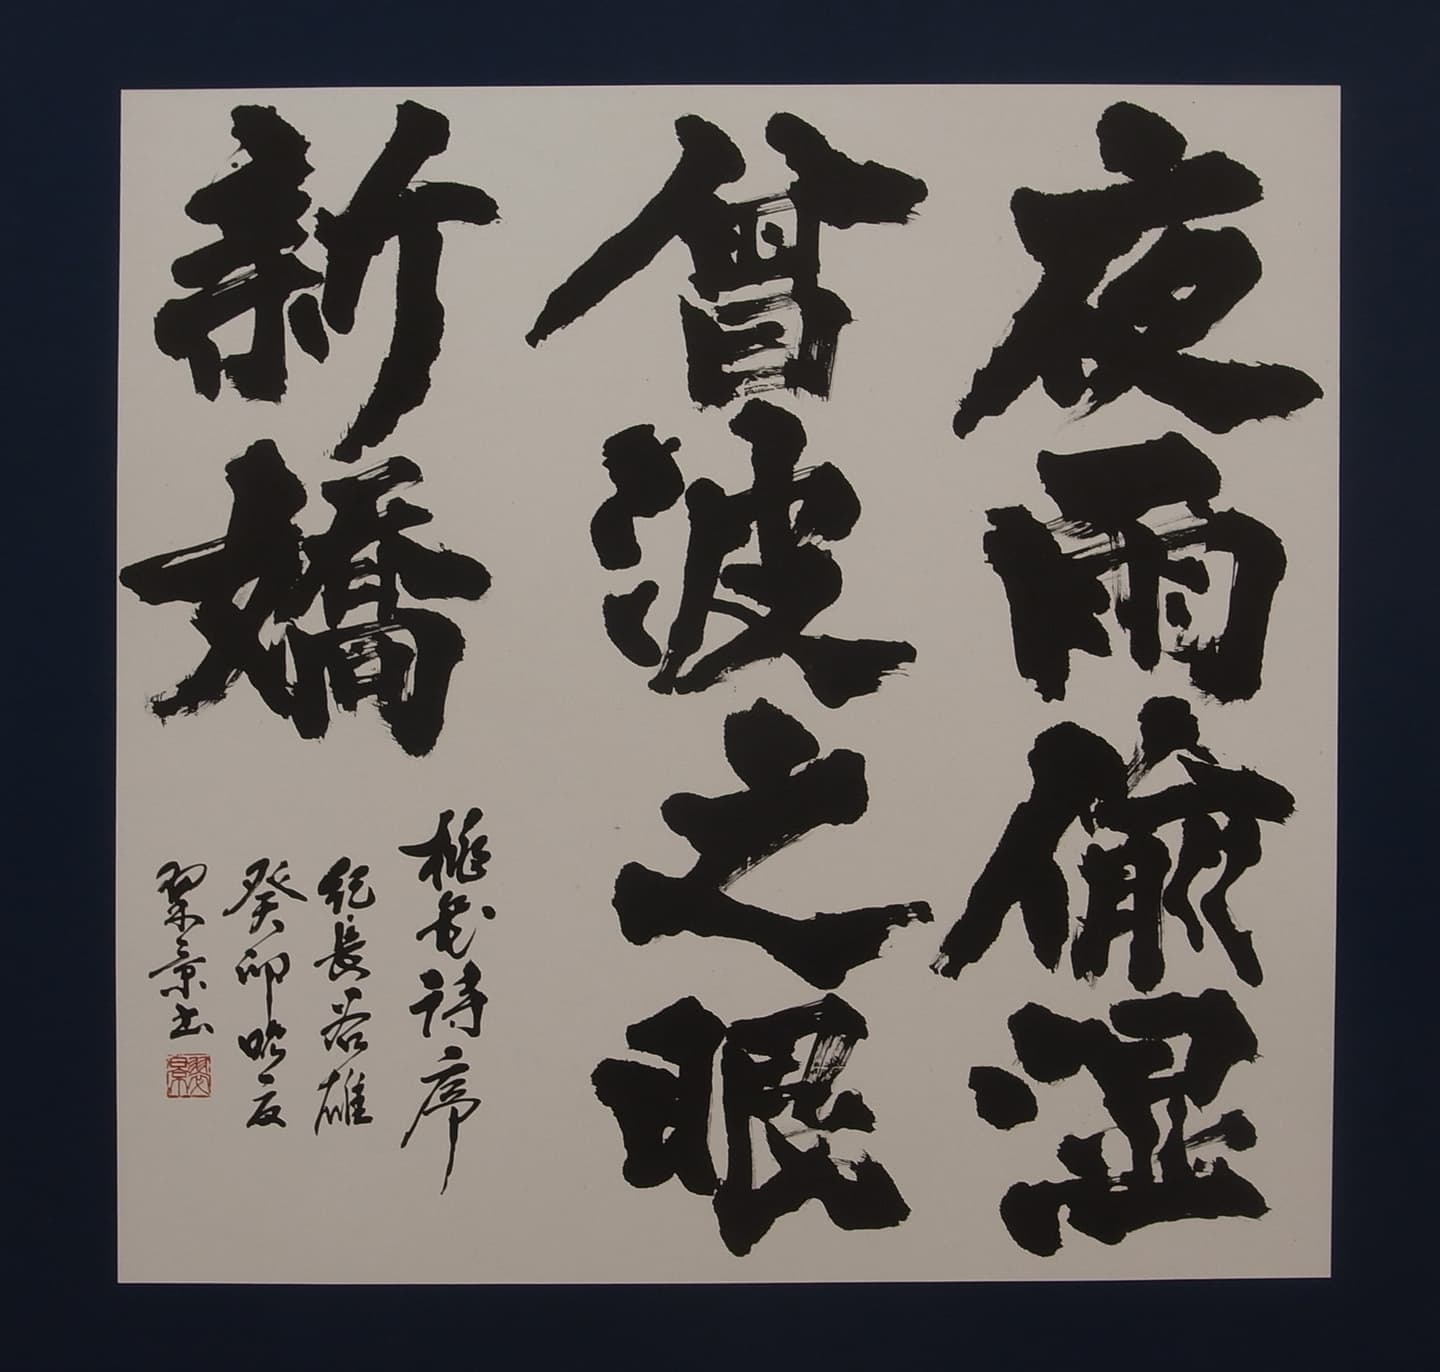 夜雨偸湿
曾波之眼
新嬌
桃花詩序
紀長谷雄
癸卯晩夏
翠景書
翠景